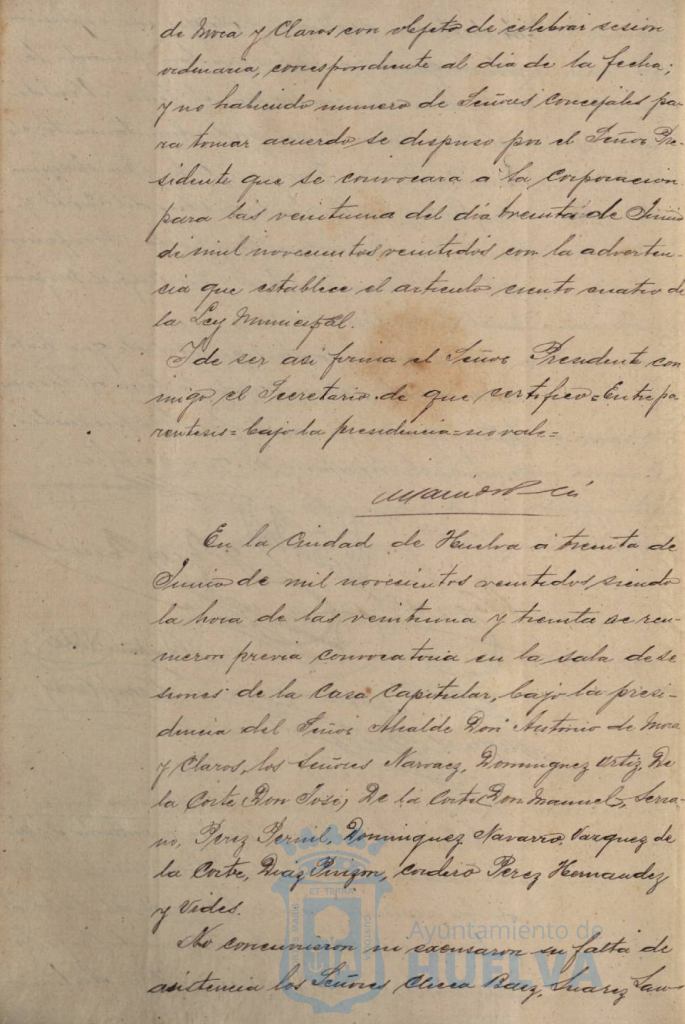 de Mora y Claros con objeto de celebrar sesion
ordinaria, correspondiente al dia de la fecha;
y no habiendo numero de Señores Concejales pa-
ra tomar acuerdo se dispuso por el Señor Pre-
sidente que se convocara a la Corporacion
para las veintiuna del dia treinta de Junio
de mil novecientos veintidos con la adverten-
cia que establece el articulo ciento cuatro de
la Ley Municipal.
Y de ser asi firma el Señor Presidente con-
migo el Secretario de que certifico=Entre pa
rentesis=bajo la presidencia=no vale=
En la Ciudad de Huelva á treinta de
Junio de mil novecientos veintidos, siendo
la hora de las veintiuna y treinta se reu-
nieron previa convocatoria en la sala de se
siones de la Casa Capitular, bajo la presi-
dencia del Señor Alcalde Don Antonio de Mora
y Claros, los Señores Narvaez, Dominguez Ortiz, De
la Corte (Don José) De la Corte (Don Manuel), Serra-
no, Perez Pernil, Dominguez Navarro, Vazquez de
la Corte, Diaz Pinzon, Cordero Perez Hernandez
y Vides.
No concurrieron ni excusaron su falta de
asistencia los Señores Checa Baez, Suarez
Ayuntamiento de
HUELVA